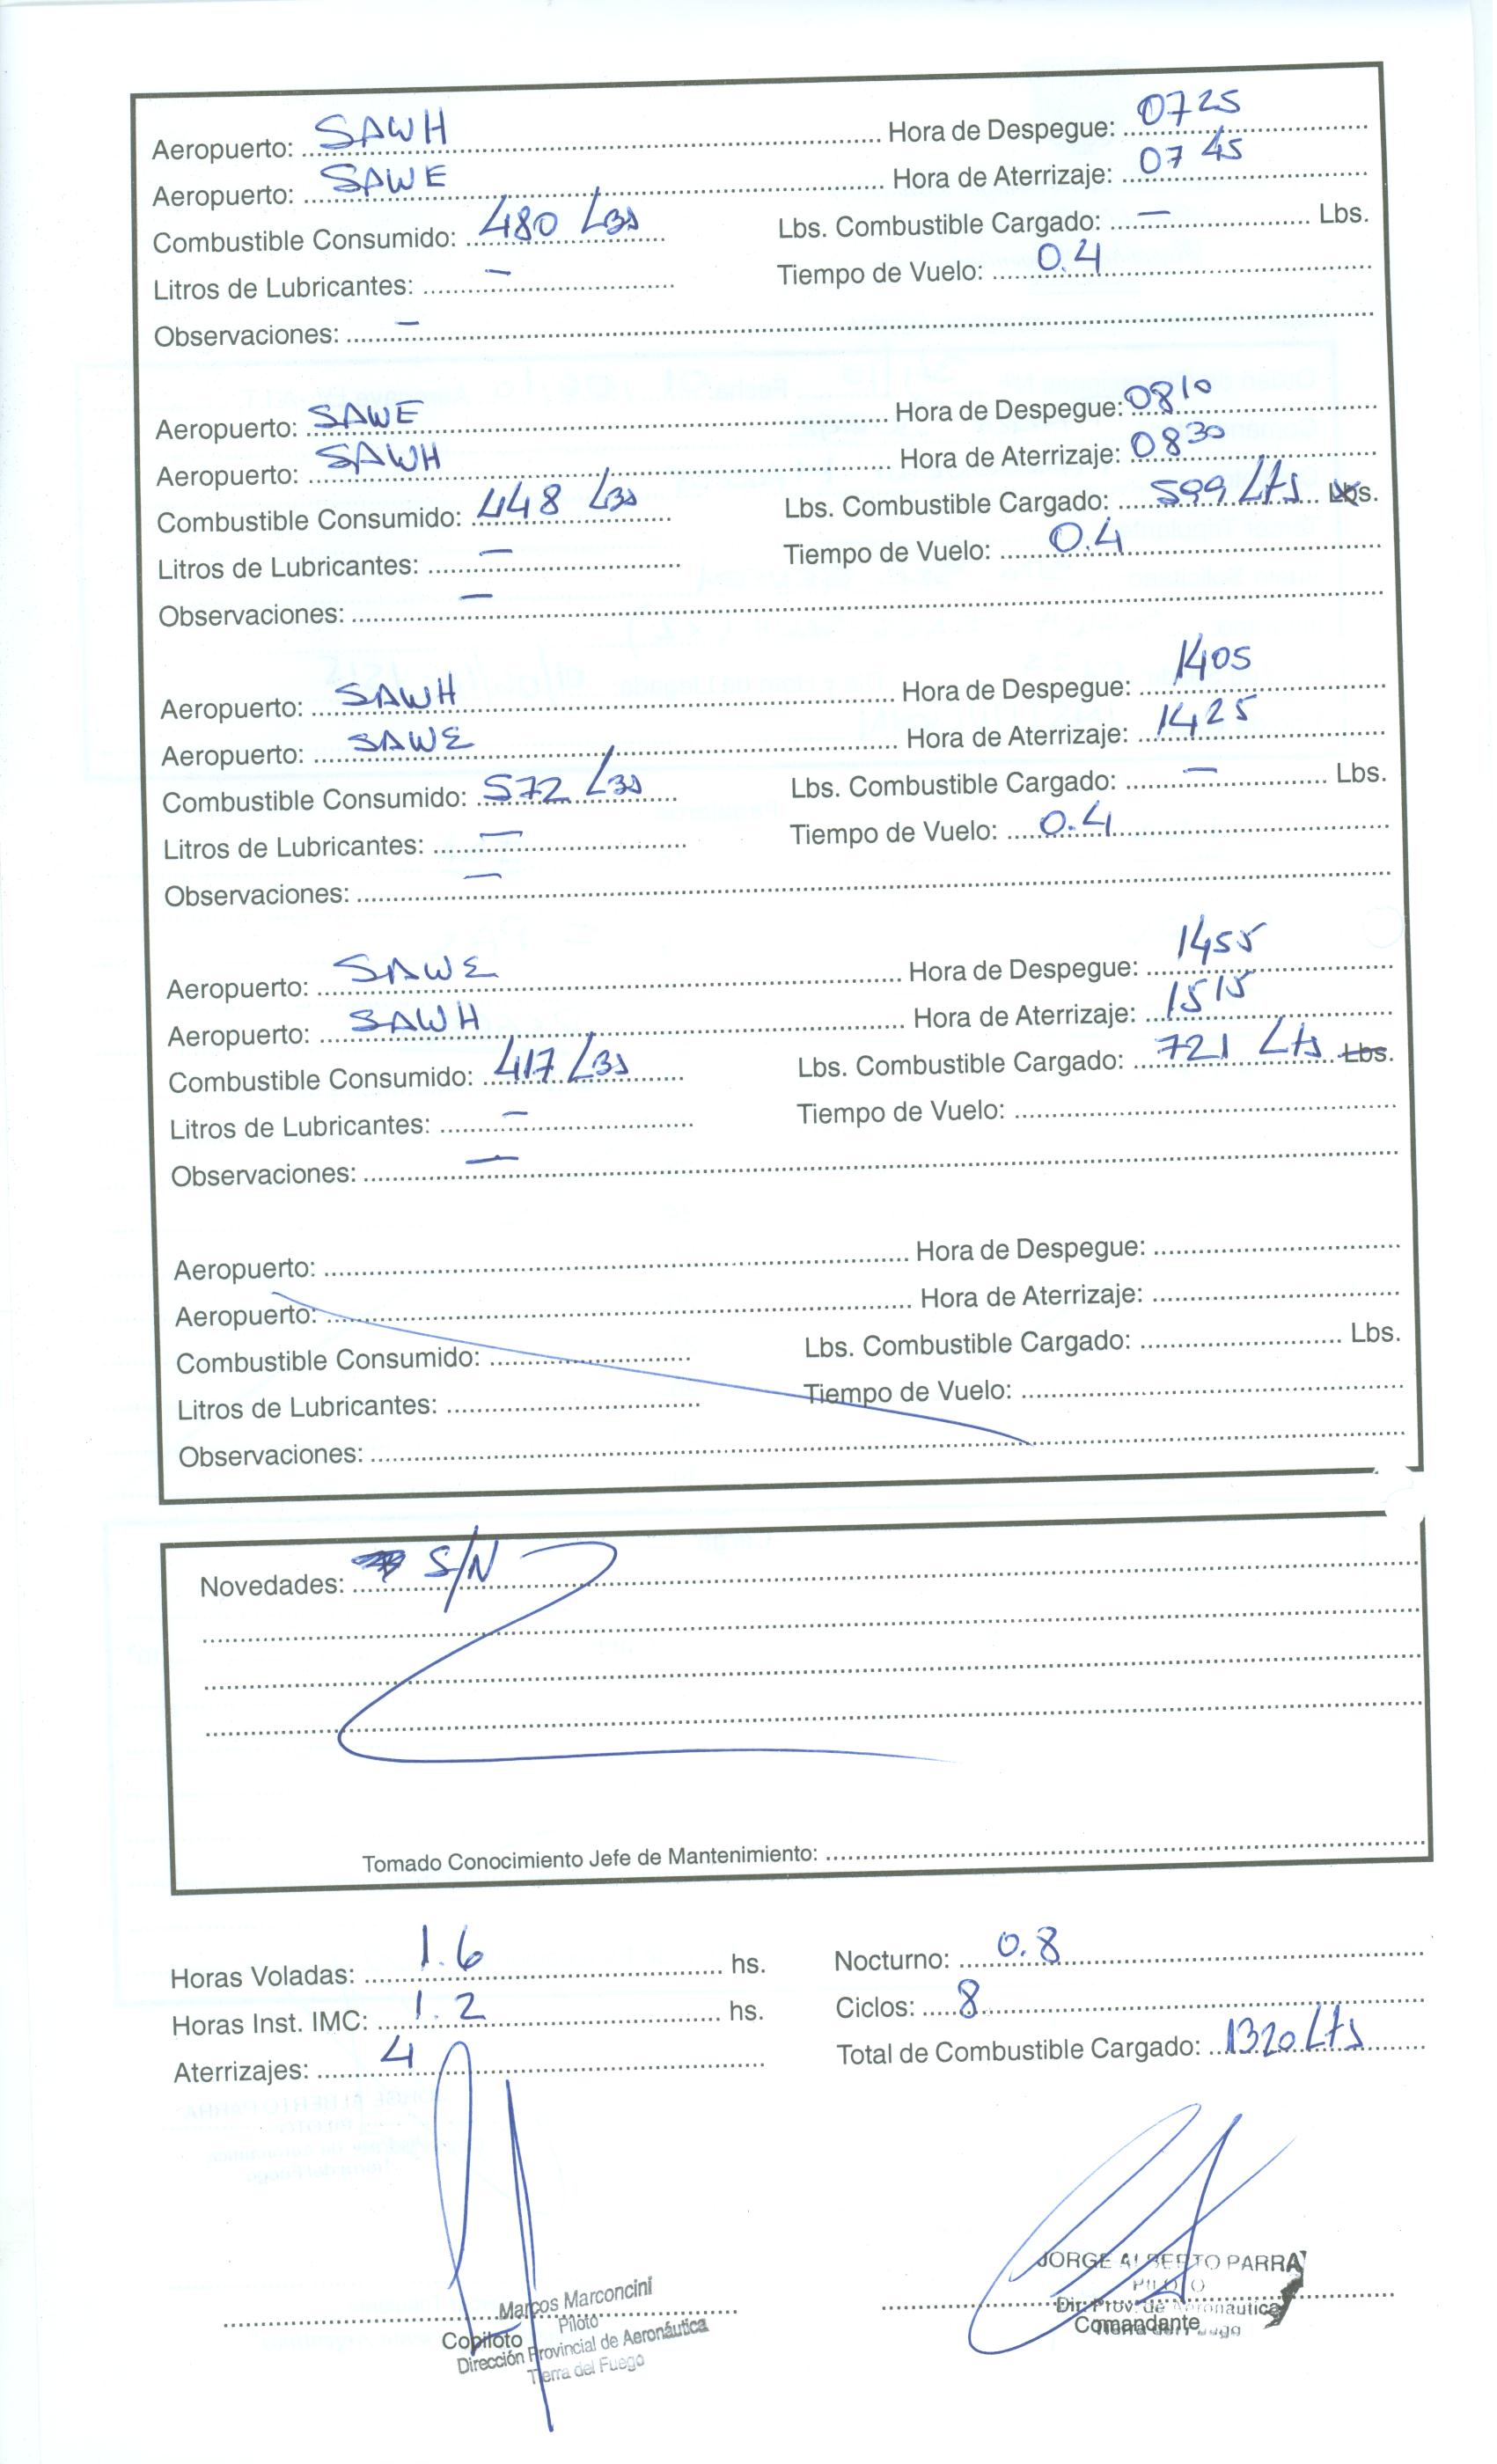 Aeropuerto: SAWH Hora de Despegue: 0725
Aeropuerto: SAWE Hora de Aterrizaje: 0745
Combustible Consumido: 480 Lbs Lbs. Combustible Cargado: — Lbs.
Litros de Lubricantes: — Tiempo de Vuelo: 0.4
Observaciones: —
Aeropuerto: SAWE Hora de Despegue: 0810
Aeropuerto: SAWH Hora de Aterrizaje: 0830
Combustible Consumido: 448 Lbs Lbs. Combustible Cargado: 599 Lts Lbs.
Litros de Lubricantes: — Tiempo de Vuelo: 0.4
Observaciones: —
Aeropuerto: SAWH Hora de Despegue: 1405
Aeropuerto: SAWE Hora de Aterrizaje: 1425
Combustible Consumido: 572 Lbs Lbs. Combustible Cargado: — Lbs.
Litros de Lubricantes: — Tiempo de Vuelo: 0.4
Observaciones: —
Aeropuerto: SAWE Hora de Despegue: 1455
Aeropuerto: SAWH Hora de Aterrizaje: 1515
Combustible Consumido: 417 Lbs Lbs. Combustible Cargado: 721 Lts Lbs.
Litros de Lubricantes: — Tiempo de Vuelo:
Observaciones: —
Aeropuerto: Hora de Despegue:
Aeropuerto: Hora de Aterrizaje:
Combustible Consumido: Lbs. Combustible Cargado: Lbs.
Litros de Lubricantes: Tiempo de Vuelo:
Observaciones:
Novedades: S/N
Tomado Conocimiento Jefe de Mantenimiento:
Horas Voladas: 1.6 hs. Nocturno: 0.8
Horas Inst. IMC: 1.2 hs. Ciclos: 8
Aterrizajes: 4 Total de Combustible Cargado: 1320 Lts
Marcos Marconcini
Piloto
Copiloto
Dirección Provincial de Aeronáutica
Tierra del Fuego
JORGE ALBERTO PARRA
PILOTO
Dir. Prov. de Aeronautica
Comandante
Tierra del Fuego